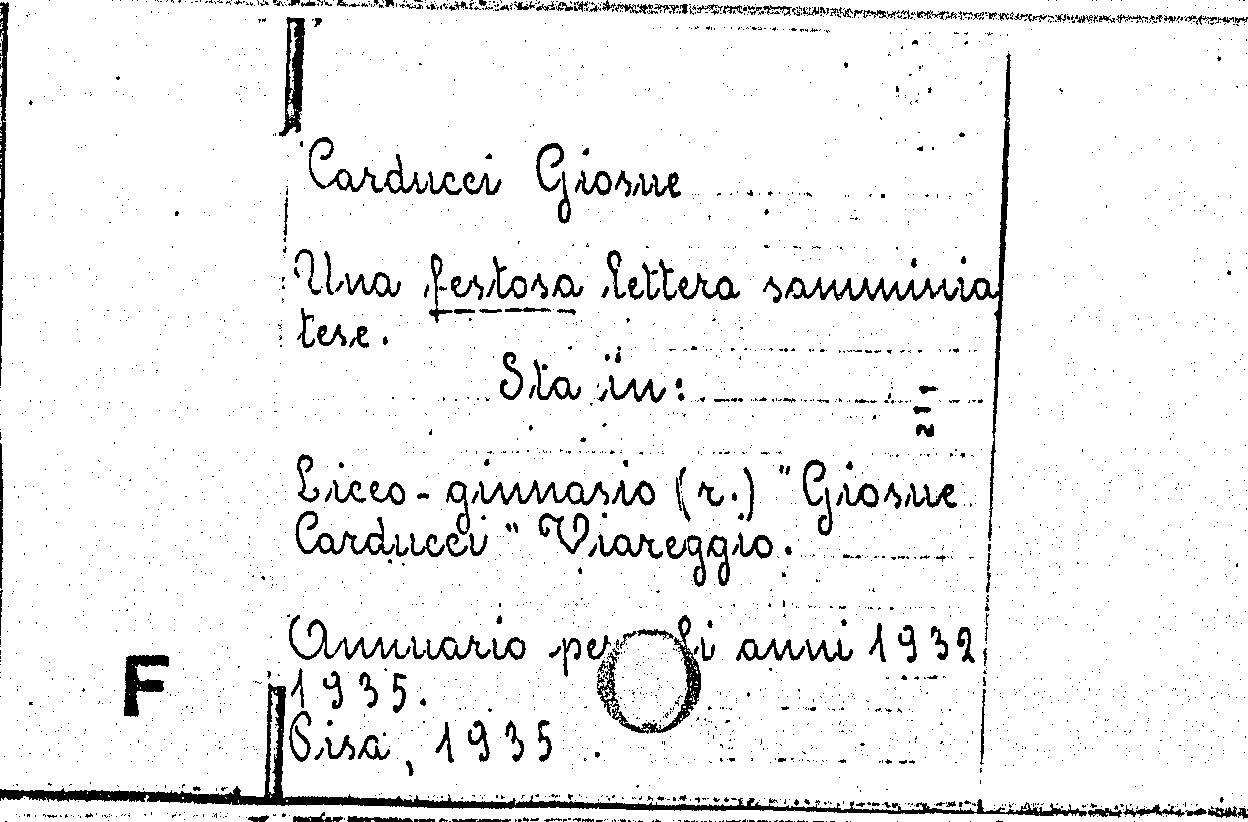 Carducci Giosue
Una festosa lettera samminia
tese.
Sta in:
211
Liceo-ginnasio (r.) "Giosue
Carducci" Viareggio.
Annuario per li anni 1932
1935.
F
Pisa, 1935.